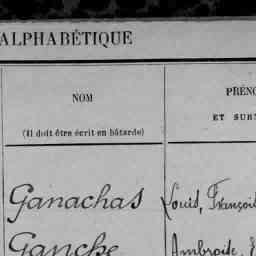 ALPHABÉTIQUE
NOM
PRÉNO
(Il doit être écrit en bâtarde)
ET SURN
Ganachas Louis, François
Ganche Ambroise,